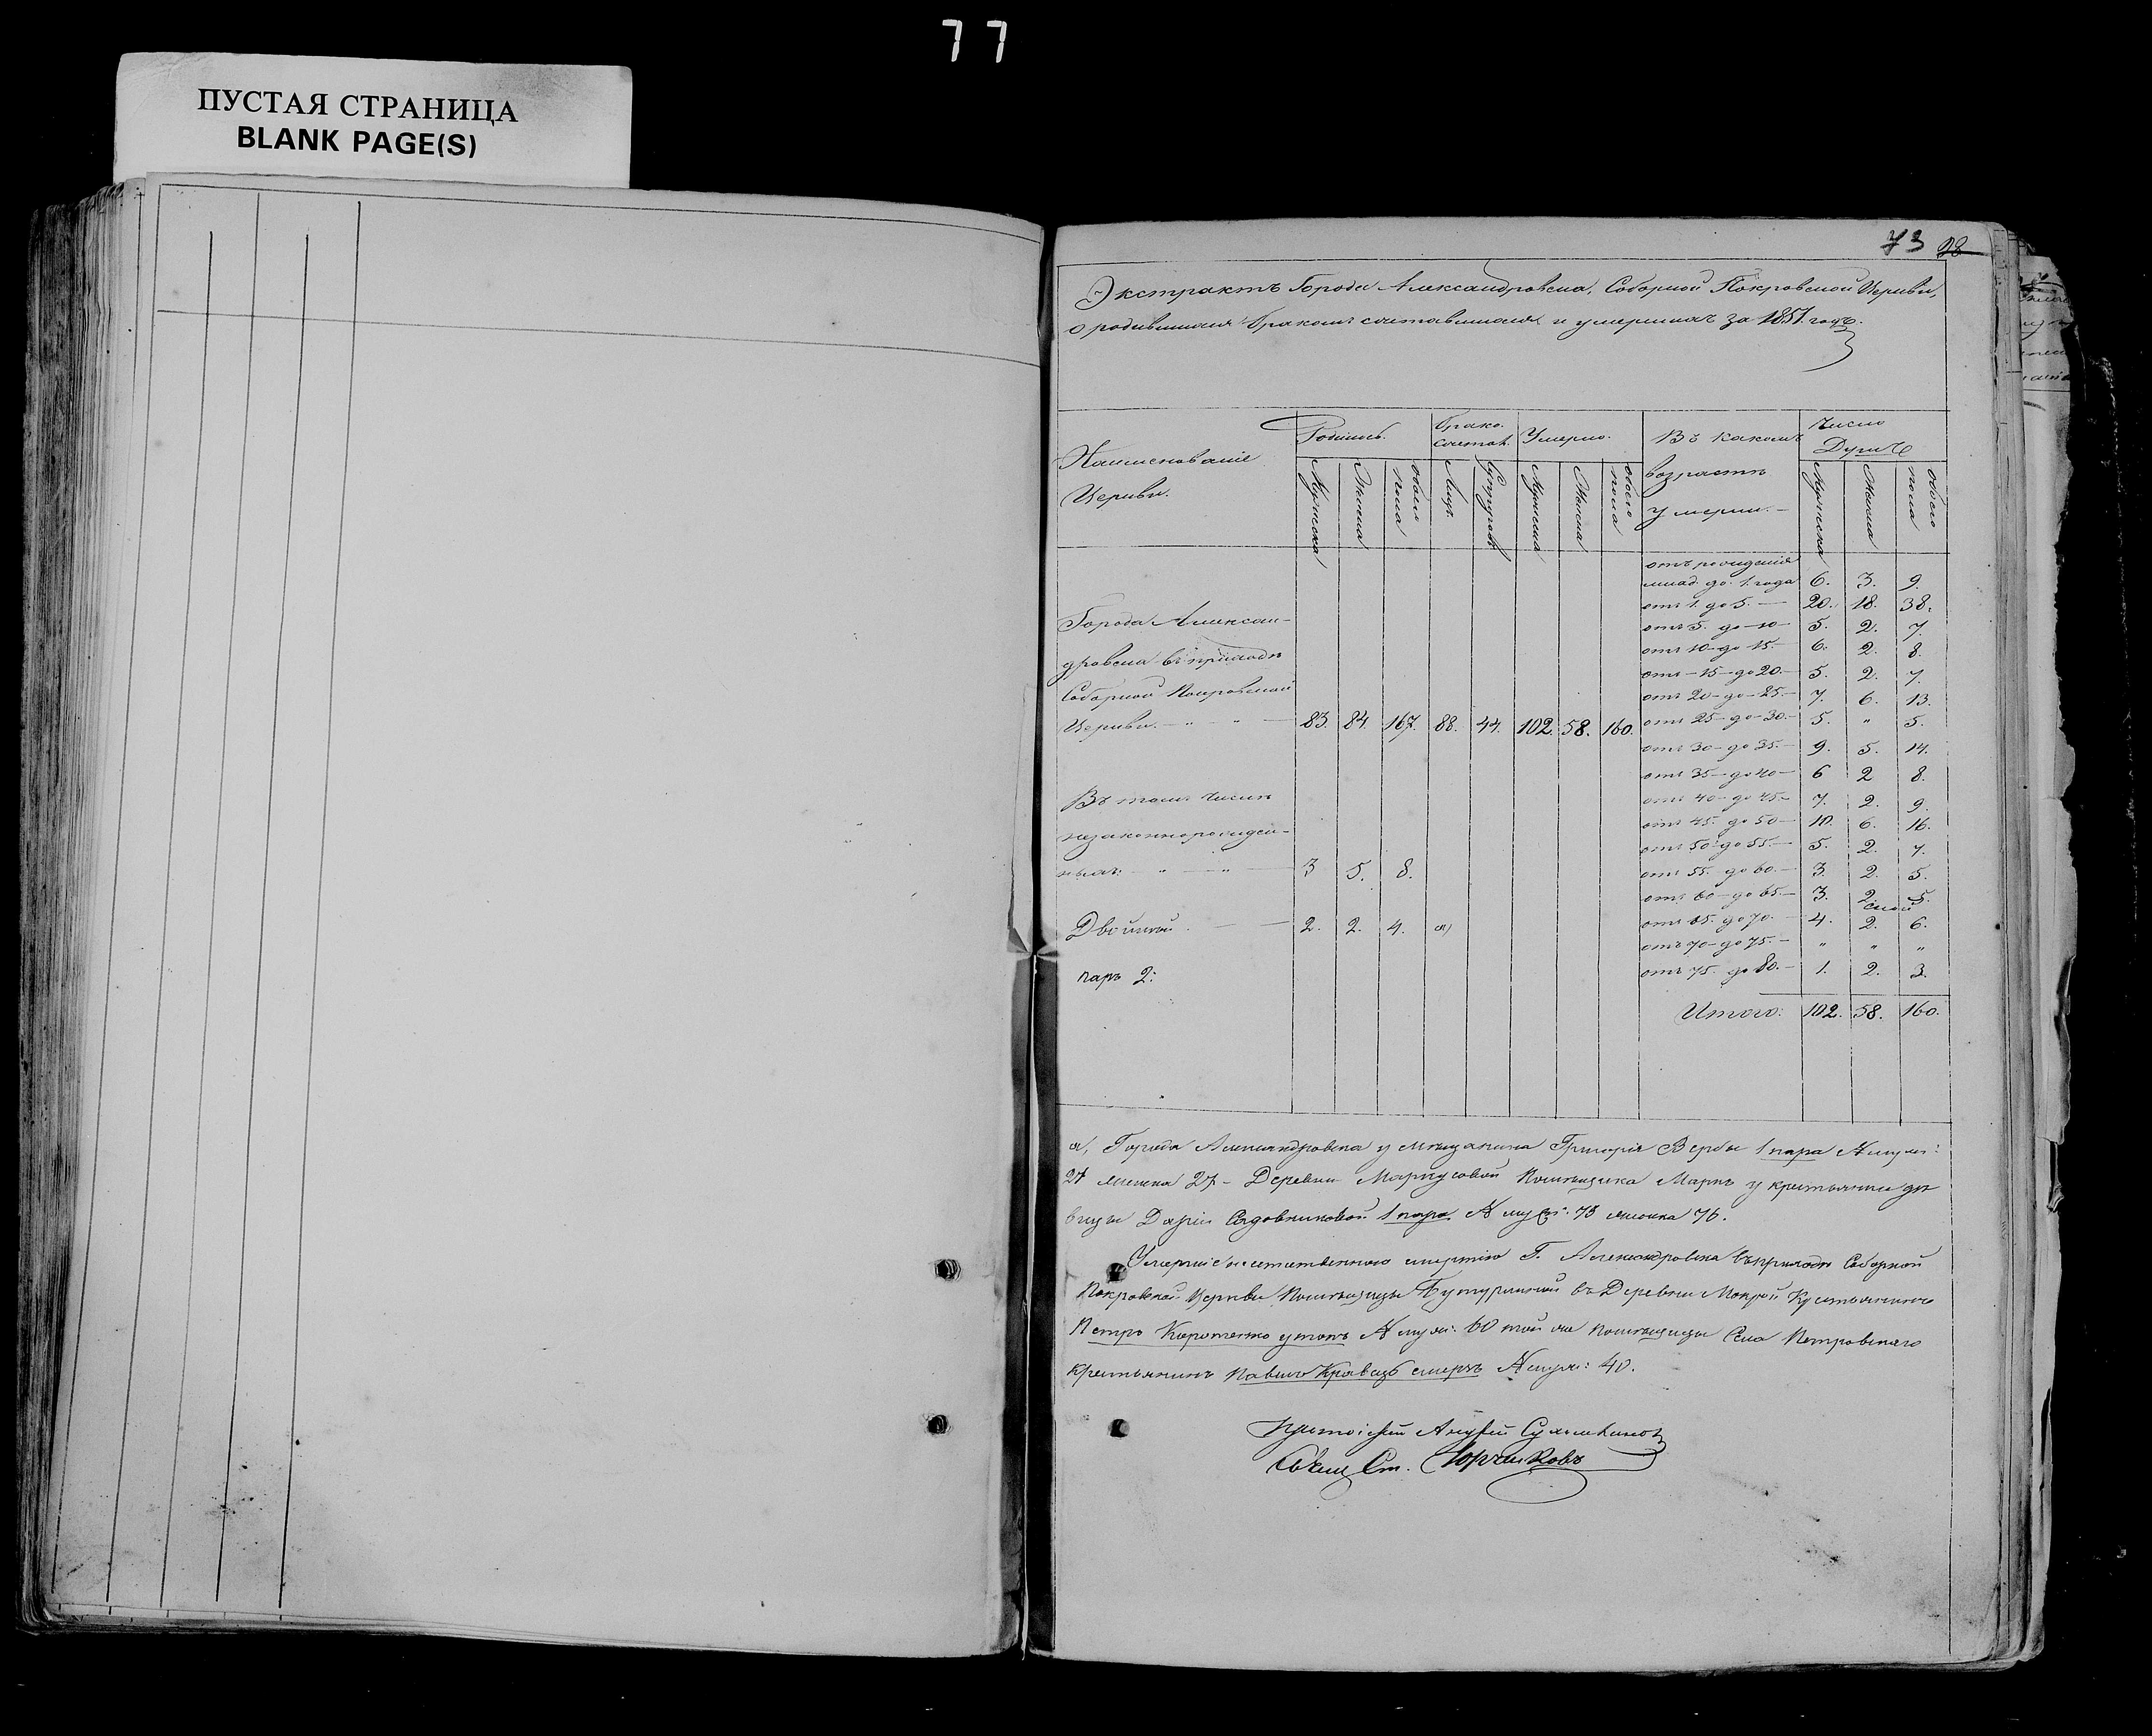 77
ПУСТАЯ СТРАНИЦА
BLANK PAGE(S)
73 98
Экстрактъ Города Александровска, Соборной Покровской Церкви,
о родившихся бракомъ сочетавшихся и умершихъ за 1851 годъ.
Наименованіе Церкви.
Родилось.
Брако. сочетав.
Умерло.
Въ какомъ возрастѣ умерли.
Число Душъ
Мужска Женска обоего пола Лицъ Супруговъ Мужска Женска обоего пола Мужска Женска обоего пола
отъ рожденія
млад. до 1. года 6. 3. 9.
отъ 1. до 5. — 20. 18. 38.
отъ 5. до 10 — 5. 2. 7.
отъ 10 до 15. — 6. 2. 8.
отъ 15 до 20. — 5. 2. 7.
отъ 20 до 25. — 7. 6. 13.
отъ 25 до 30. — 5. " 5.
отъ 30 до 35. — 9. 5. 14.
отъ 35 до 40 — 6 2 8.
отъ 40 до 45. — 7. 2. 9.
отъ 45. до 50 — 10. 6. 16.
отъ 50 до 55. — 5. 2. 7.
отъ 55. до 60. — 3. 2. 5.
отъ 60 до 65. — 3. 2 5.
отъ 65. до 70. — 4. 2. 6.
отъ 70 до 75. — " " "
отъ 75. до 80. — 1. 2. 3.
Итого: 102. 58. 160.
Города Алексан-
дровска въ приходѣ
Соборной Покровской
Церкви. — " — " — 83. 84. 167. 88. 44. 102. 58. 160.
Въ томъ числѣ
незаконнорожден-
ныхъ — " — " — 3 5. 8.
Двойней. — 2. 2. 4. а)
паръ 2:
а, Города Александровска у мѣщанина Григорія Вербы 1 пара № муж:
27 женска 27 – Деревни Маркусовой Помѣщика Маркъ у крестьянки дѣ
вицы Даріи Садовниковой 1 пара № муж: 75 женска 76.
смертію Г. Александровска въ приходѣ Соборной
Покровской Церкви Помѣщицы въ Деревни Мокрой Крестьянинъ
Петръ утопъ № муж: 60 той же помѣщицы Села Петровскаго
Крестьянинъ Павло Кравецъ № муж: 40.
Протоіерей Андрей
Ст. Юрчиковъ